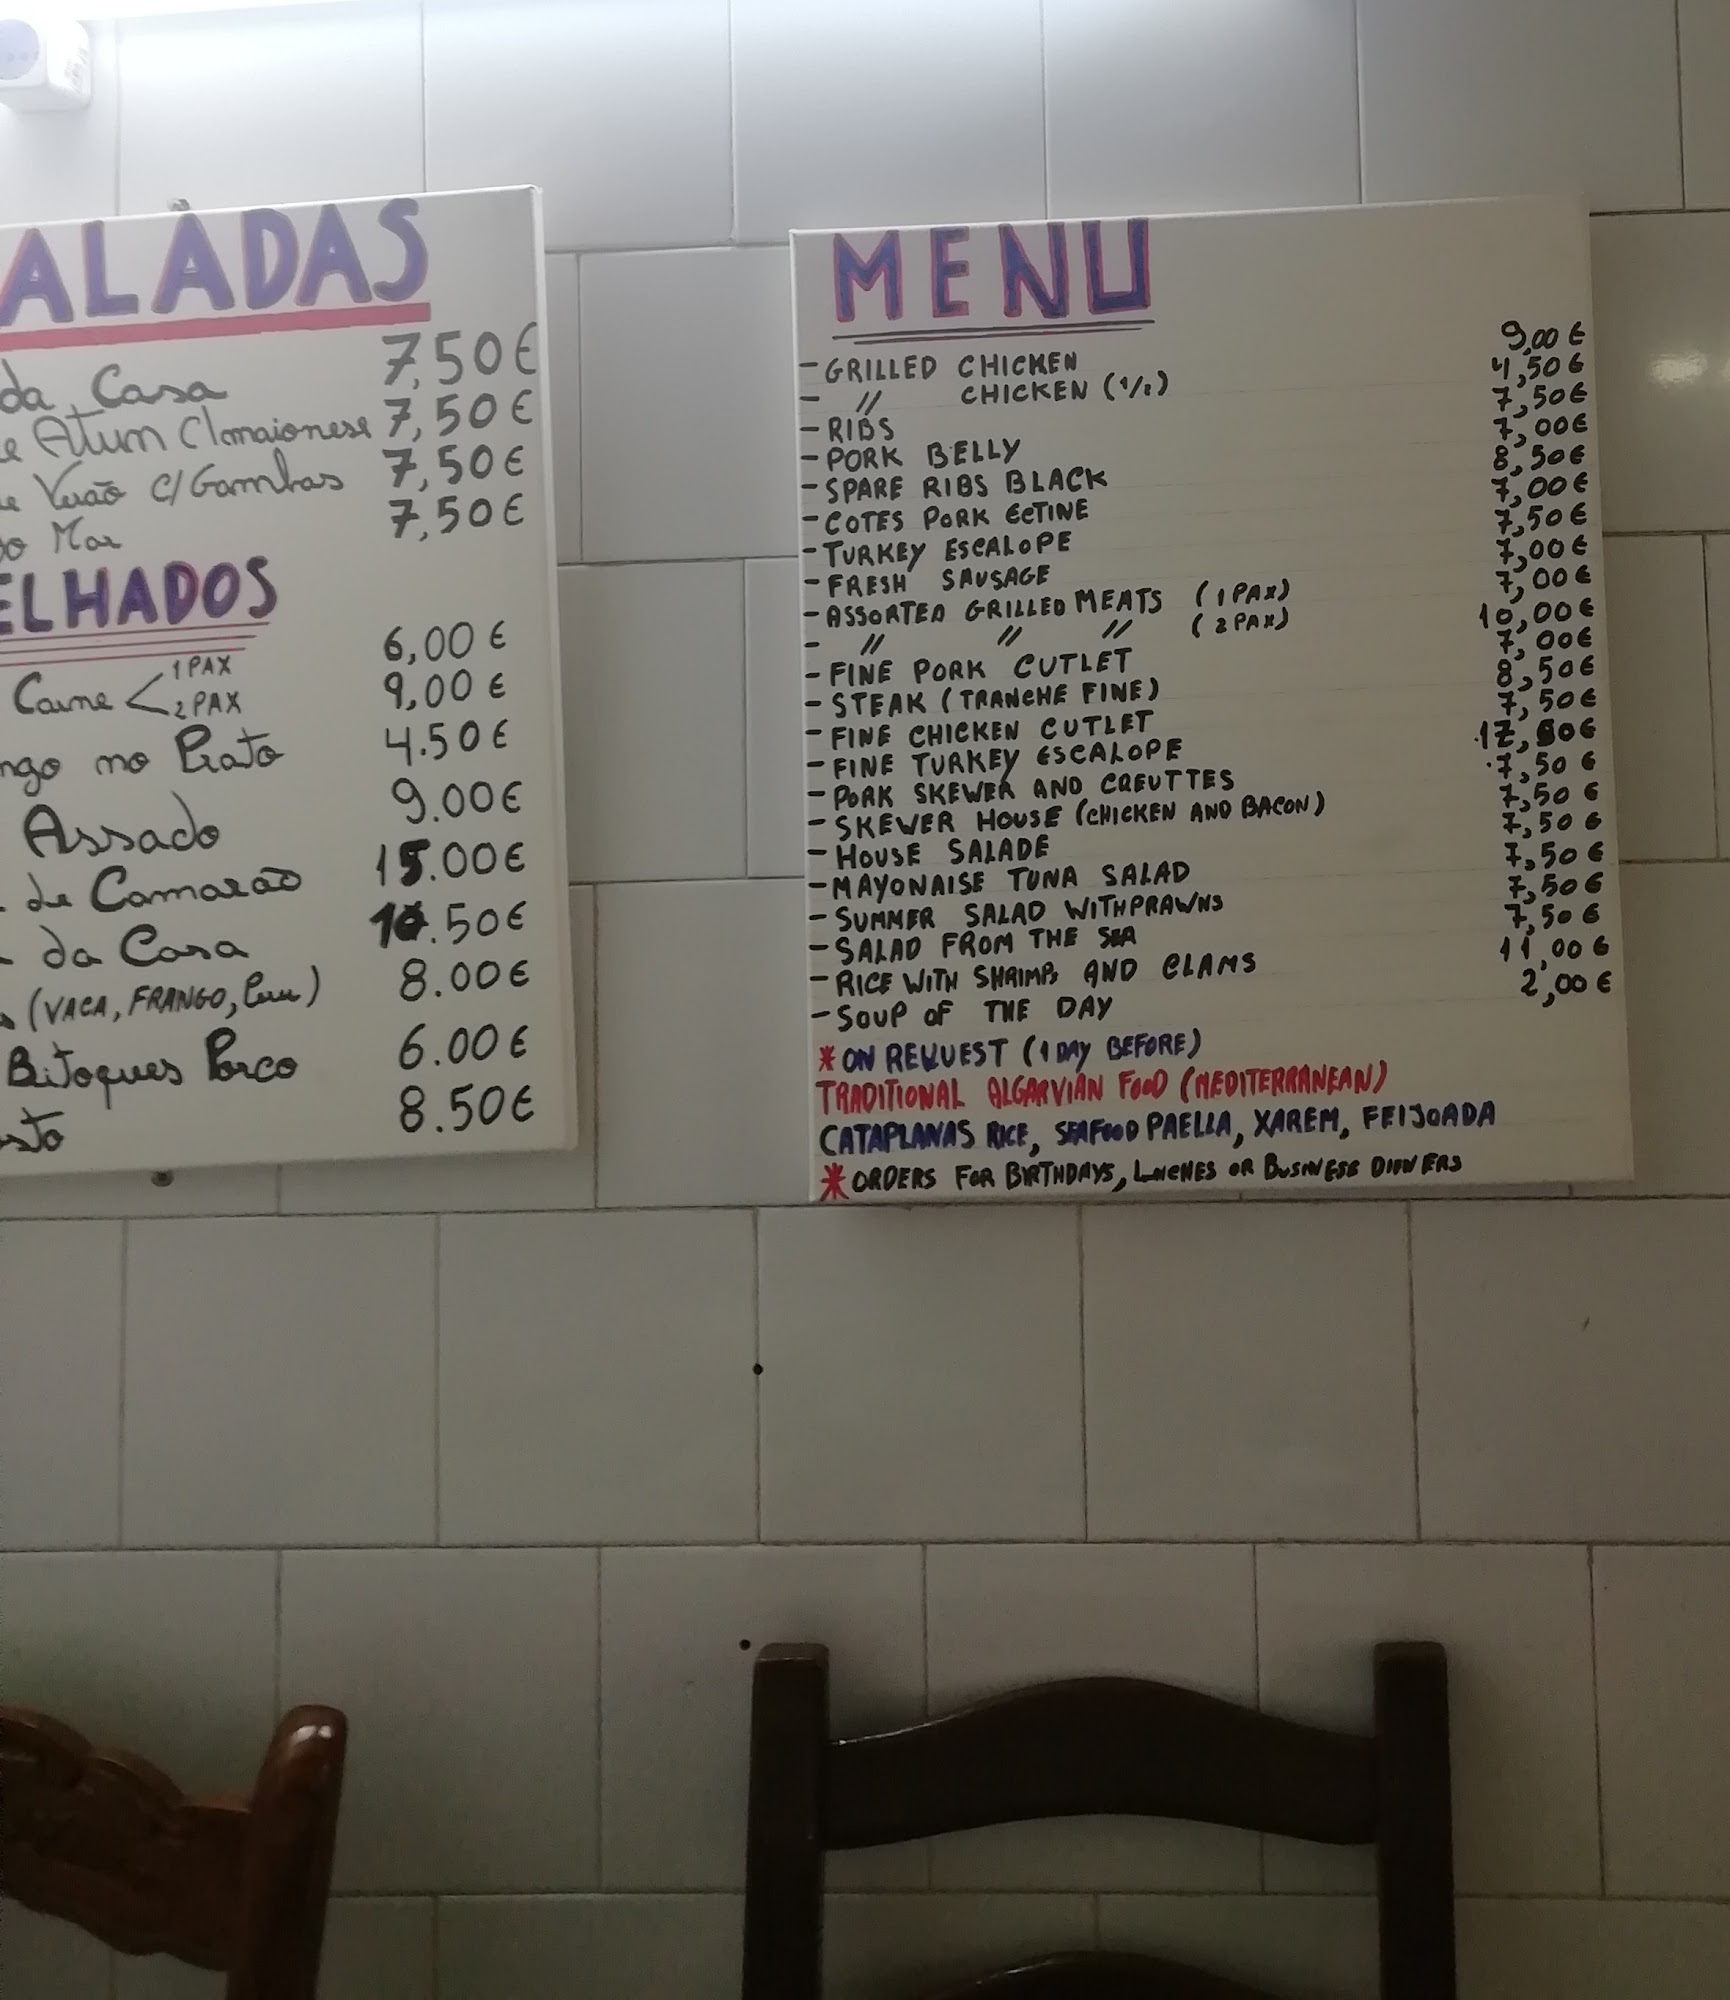 ALADAS
da Casa 7,50€
e Atum C/maionese 7,50€
de Verão C/Gambas 7,50€
do Mar 7,50€
ELHADOS
Carne < 1 PAX 6,00€
2 PAX 9,00€
ngo no Prato 4.50€
Assado 9.00€
de Camarão 15.00€
da Casa .50€
(VACA, FRANGO, ) 8.00€
Bitoques Porco 6.00€
sto 8.50€
MENU
- GRILLED CHICKEN 9,00€
- // CHICKEN (1/2) 4,50€
- RIBS 7,50€
- PORK BELLY 7,00€
- SPARE RIBS BLACK 8,50€
- COTES PORK ECTINE 7,00€
- TURKEY ESCALOPE 7,50€
- FRESH SAUSAGE 7,00€
- ASSORTED GRILLED MEATS (1 PAX) 7,00€
- // // // (2 PAX) 10,00€
- FINE PORK CUTLET 7,00€
- STEAK (TRANCHE FINE) 8,50€
- FINE CHICKEN CUTLET 7,50€
- FINE TURKEY ESCALOPE
- PORK SKEWER AND CREUTTES 7,50€
- SKEWER HOUSE (CHICKEN AND BACON) 7,50€
- HOUSE SALADE 7,50€
- MAYONAISE TUNA SALAD 7,50€
- SUMMER SALAD WITH PRAWNS 7,50€
- SALAD FROM THE SEA 7,50€
- RICE WITH SHRIMPS AND CLAMS 11,00€
- SOUP OF THE DAY 2,00€
* ON REQUEST (1 DAY BEFORE)
TRADITIONAL ALGARVIAN FOOD (MEDITERRANEAN)
CATAPLANAS RICE, SEAFOOD PAELLA, XAREM, FEIJOADA
* ORDERS FOR BIRTHDAYS, LNCHES OR BUSINESS DINNERS